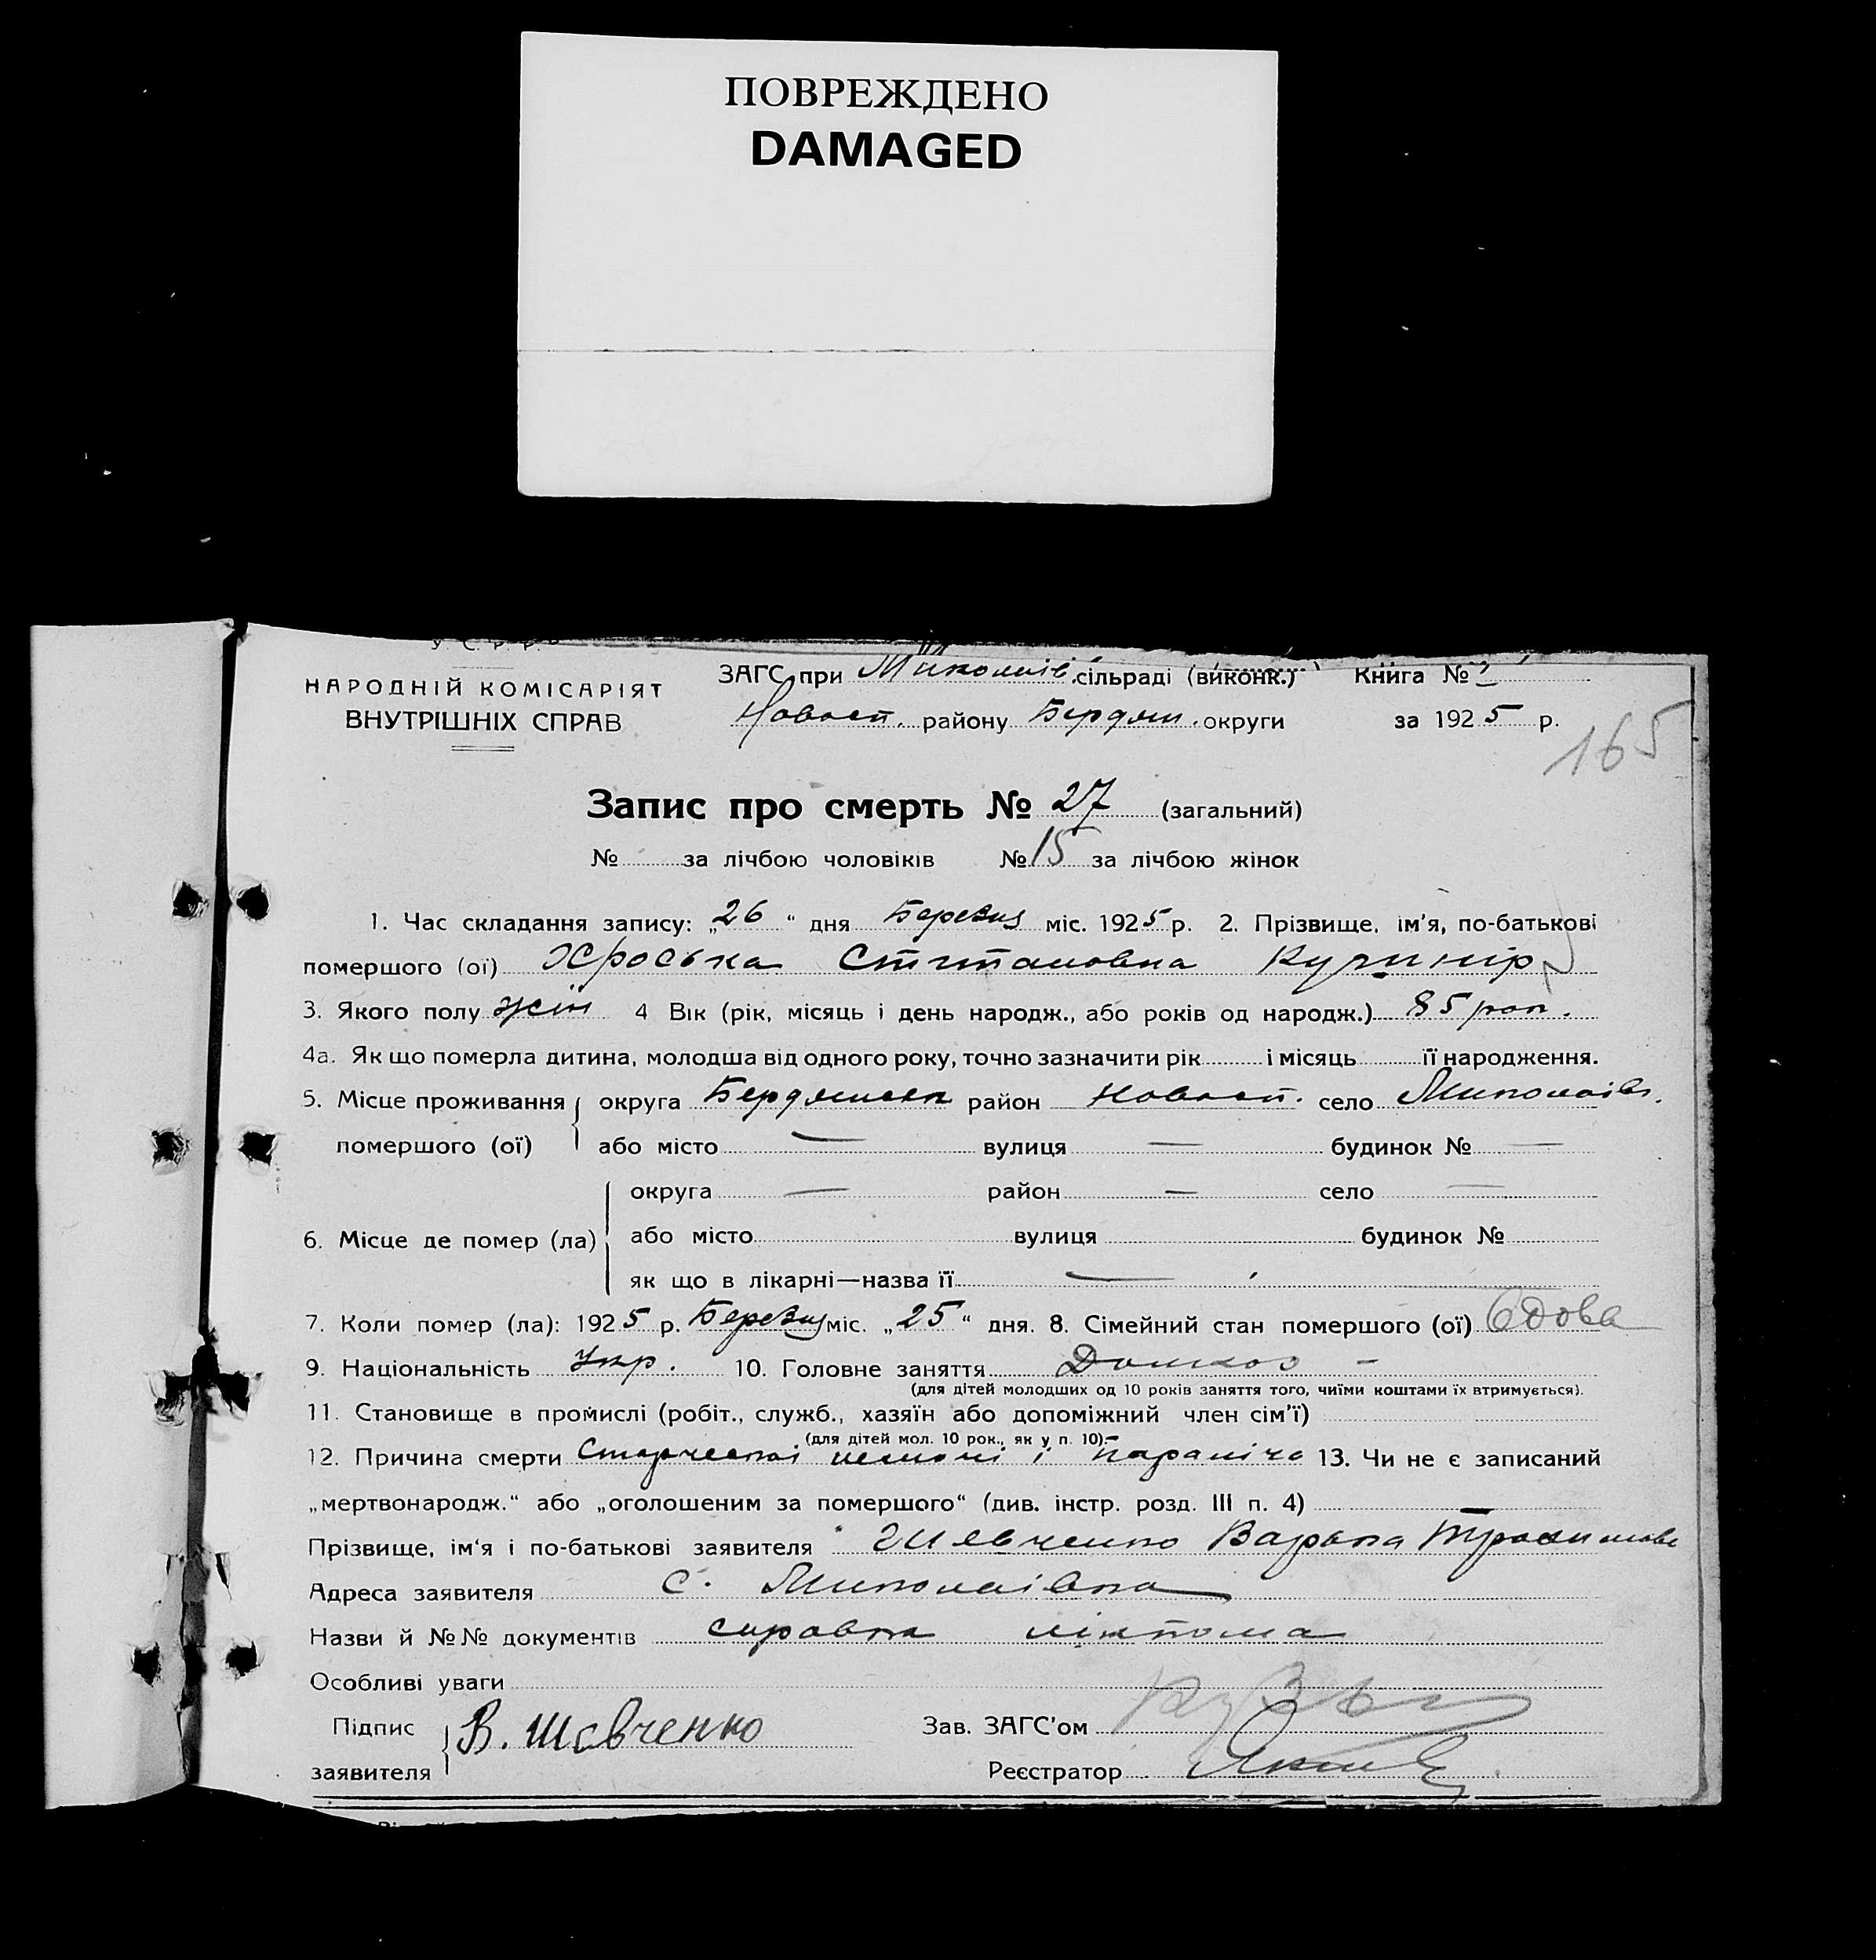 ПОВРЕЖДЕНО
DAMAGED
У С. Р. Р.
НАРОДНІЙ КОМІСАРІЯТ
ВНУТРІШНІХ СПРАВ
ЗАГС при Миколаїв. сільраді (виконк.) Книга №
Новосп. району Бердян. округи за 1925 р.
165
Запис про смерть № 27 (загальний)
№ за лічбою чоловіків № 15 за лічбою жінок
1. Час складання запису: „26“ дня Березня міс. 1925 р. 2. Прізвище, ім'я, по-батькові
помершого (ої) Хроська Степановна
3. Якого полу жін 4 Вік (рік, місяць і день народж., або років од народж.) 85 рок.
4а. Як що померла дитина, молодша від одного року, точно зазначити рік і місяць її народження.
5. Місце проживання округа Бердянськ район Новосп. село Миколаїв.
помершого (ої) або місто — вулиця — будинок № —
округа — район — село —
6. Місце де помер (ла) або місто вулиця будинок №
як що в лікарні—назва її —
7. Коли помер (ла): 1925 р. Березня міс. „25“ дня. 8. Сімейний стан помершого (ої) вдова
9. Національність Укр. 10. Головне заняття Домхоз –
(для дітей молодших од 10 років заняття того, чиїми коштами їх втримується).
11. Становище в промислі (робіт., служб., хазяїн або допоміжний член сім'ї)
(для дітей мол. 10 рок., як у п. 10).
12. Причина смерти Старческої немочі і параліча 13. Чи не є записаний
„мертвонародж.“ або „оголошеним за помершого“ (див. інстр. розд. III п. 4)
Прізвище, ім'я і по-батькові заявителя Шевченко Варвара
Адреса заявителя с. Миколаївка
Назви й №№ документів справка лікпома
Особливі уваги
Підпис
заявителя В. Шевченко
Зав. ЗАГС'ом
Реєстратор